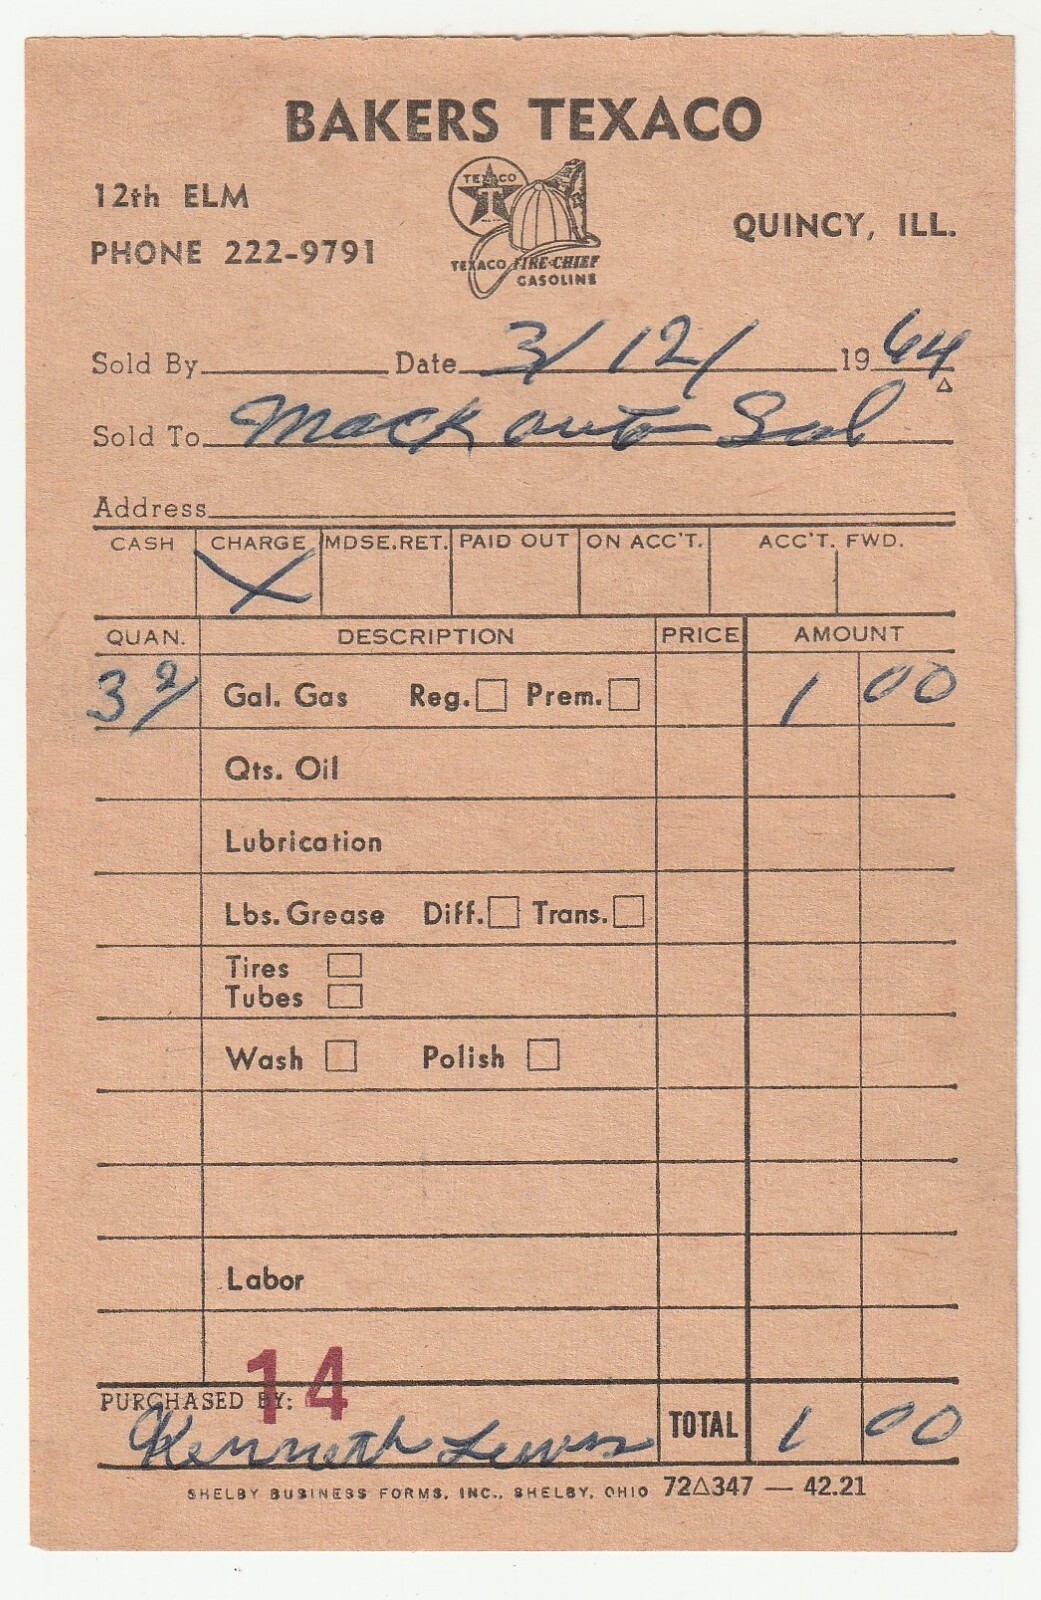 BAKERS TEXACO
12th ELM
PHONE 222-9791
TEXACO
T
TEXACO FIRE-CHIEF
GASOLINE
QUINCY, ILL.
Sold By Date 3/12/ 1964
Sold To Mack auto Sal
Address
CASH CHARGE MDSE.RET. PAID OUT ON ACC'T. ACC'T. FWD.
X
QUAN. DESCRIPTION PRICE AMOUNT
3 9/ Gal. Gas Reg. Prem. 1 00
Qts. Oil
Lubrication
Lbs. Grease Diff. Trans.
Tires
Tubes
Wash Polish
Labor
14
PURCHASED BY:
Kenneth Lewis TOTAL 1 00
SHELBY BUSINESS FORMS, INC., SHELBY, OHIO 72△347 — 42.21